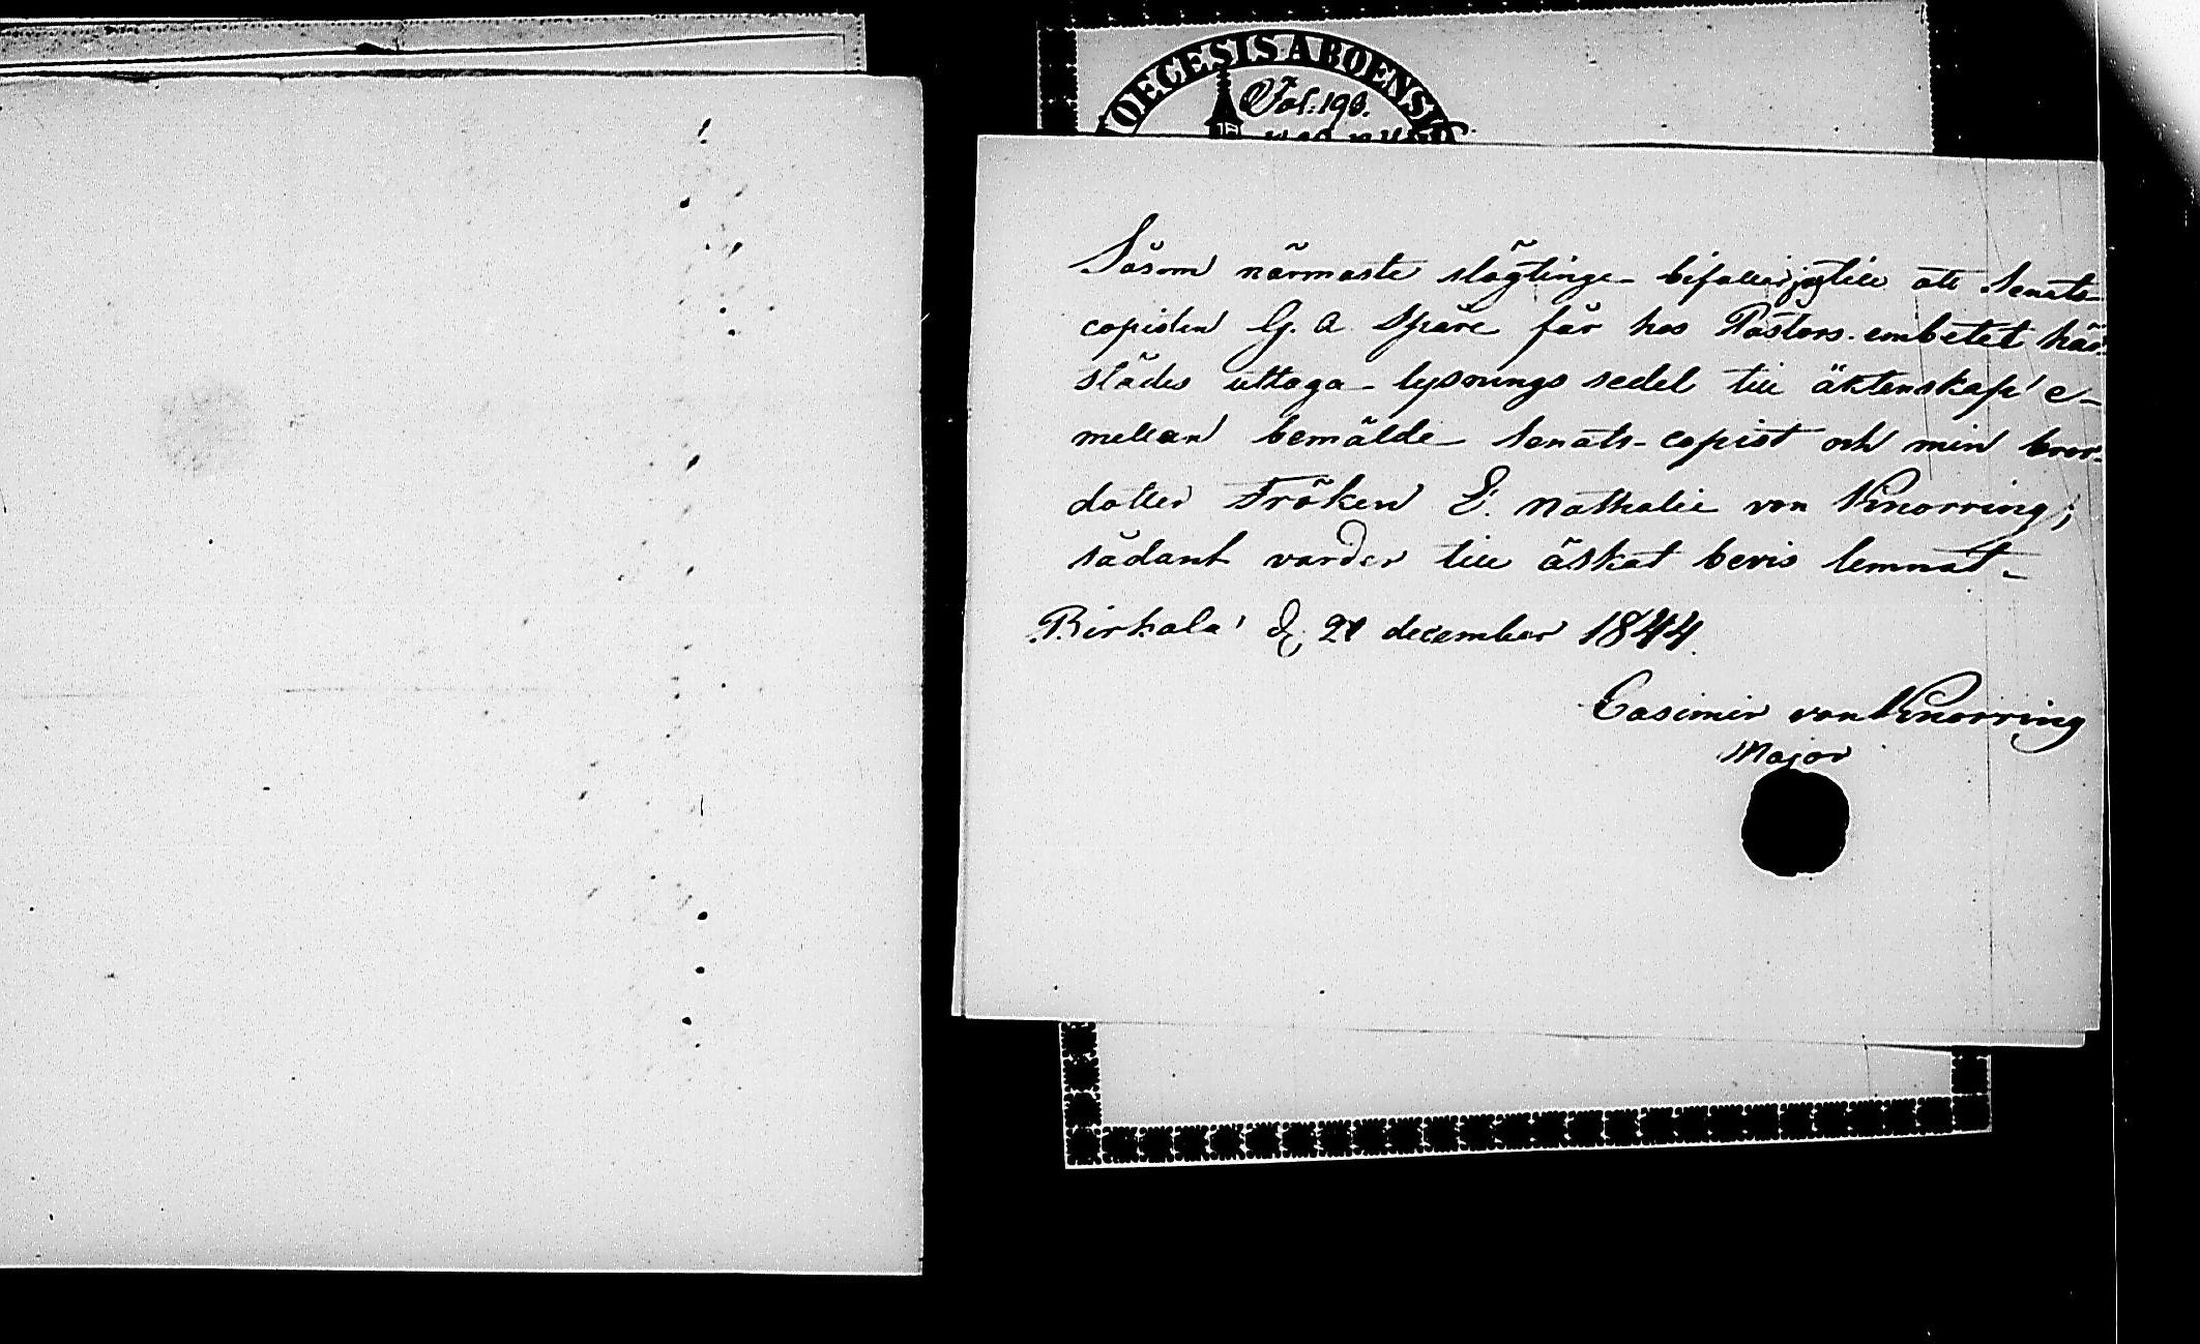 DIOECESIS ABOENSIS
Fol: 190.
Såsom närmaste slägtinge bifaller jag till att Senats-
copisten G. A Spåre får hos Pastors-embetet här-
städes uttaga lysnings sedel till äktenskap e-
mellan bemälde Senats-copist och min bror-
dotter Fröken E. Nathalie von Knorring;
sådant varder till äskat bevis lemnat
Birkala d. 21 december 1844.
Casimir von Knorring
Major